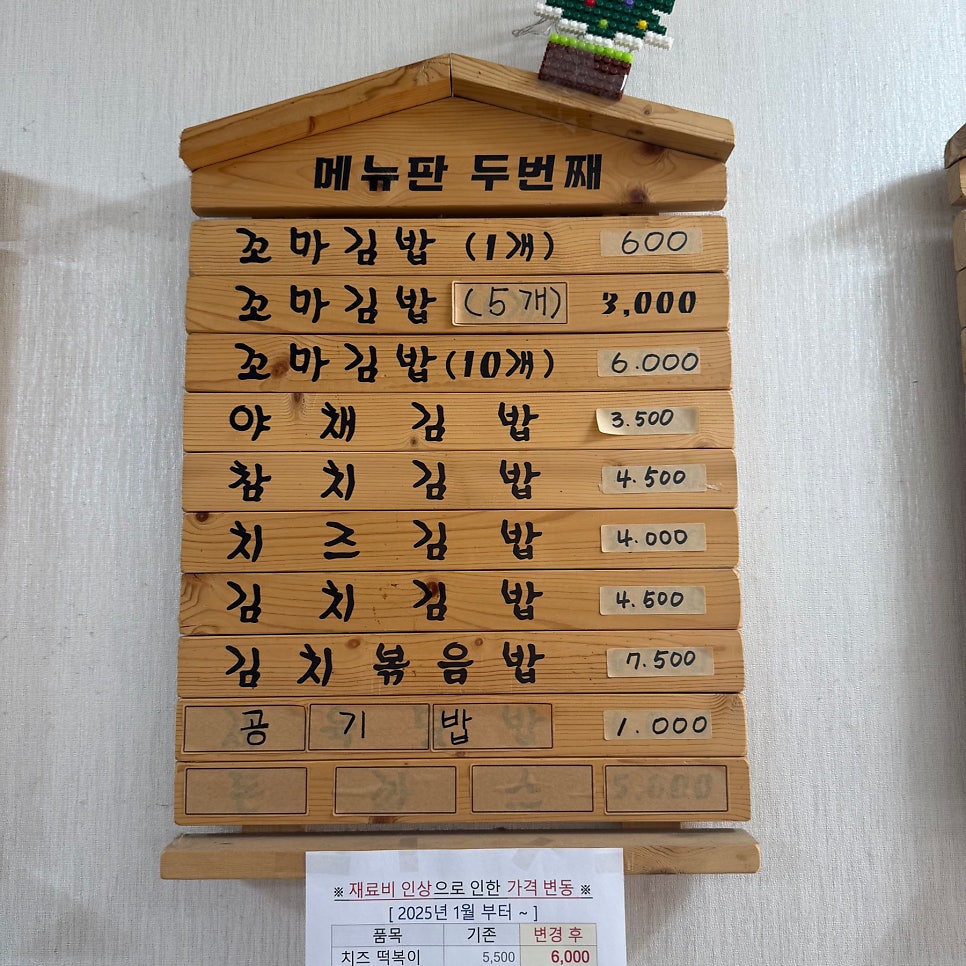 메뉴판 두번째
꼬마김밥 (1개) 600
꼬마김밥 (5개) 3,000
꼬마김밥 (10개) 6.000
야채김밥 3.500
참치김밥 4.500
치즈김밥 4.000
김치김밥 4.500
김치볶음밥 7.500
공기밥 1.000
5,000
※ 재료비 인상으로 인한 가격 변동 ※
[ 2025년 1월 부터 ~ ]
품목 기존 변경 후
치즈 떡볶이 5,500 6,000